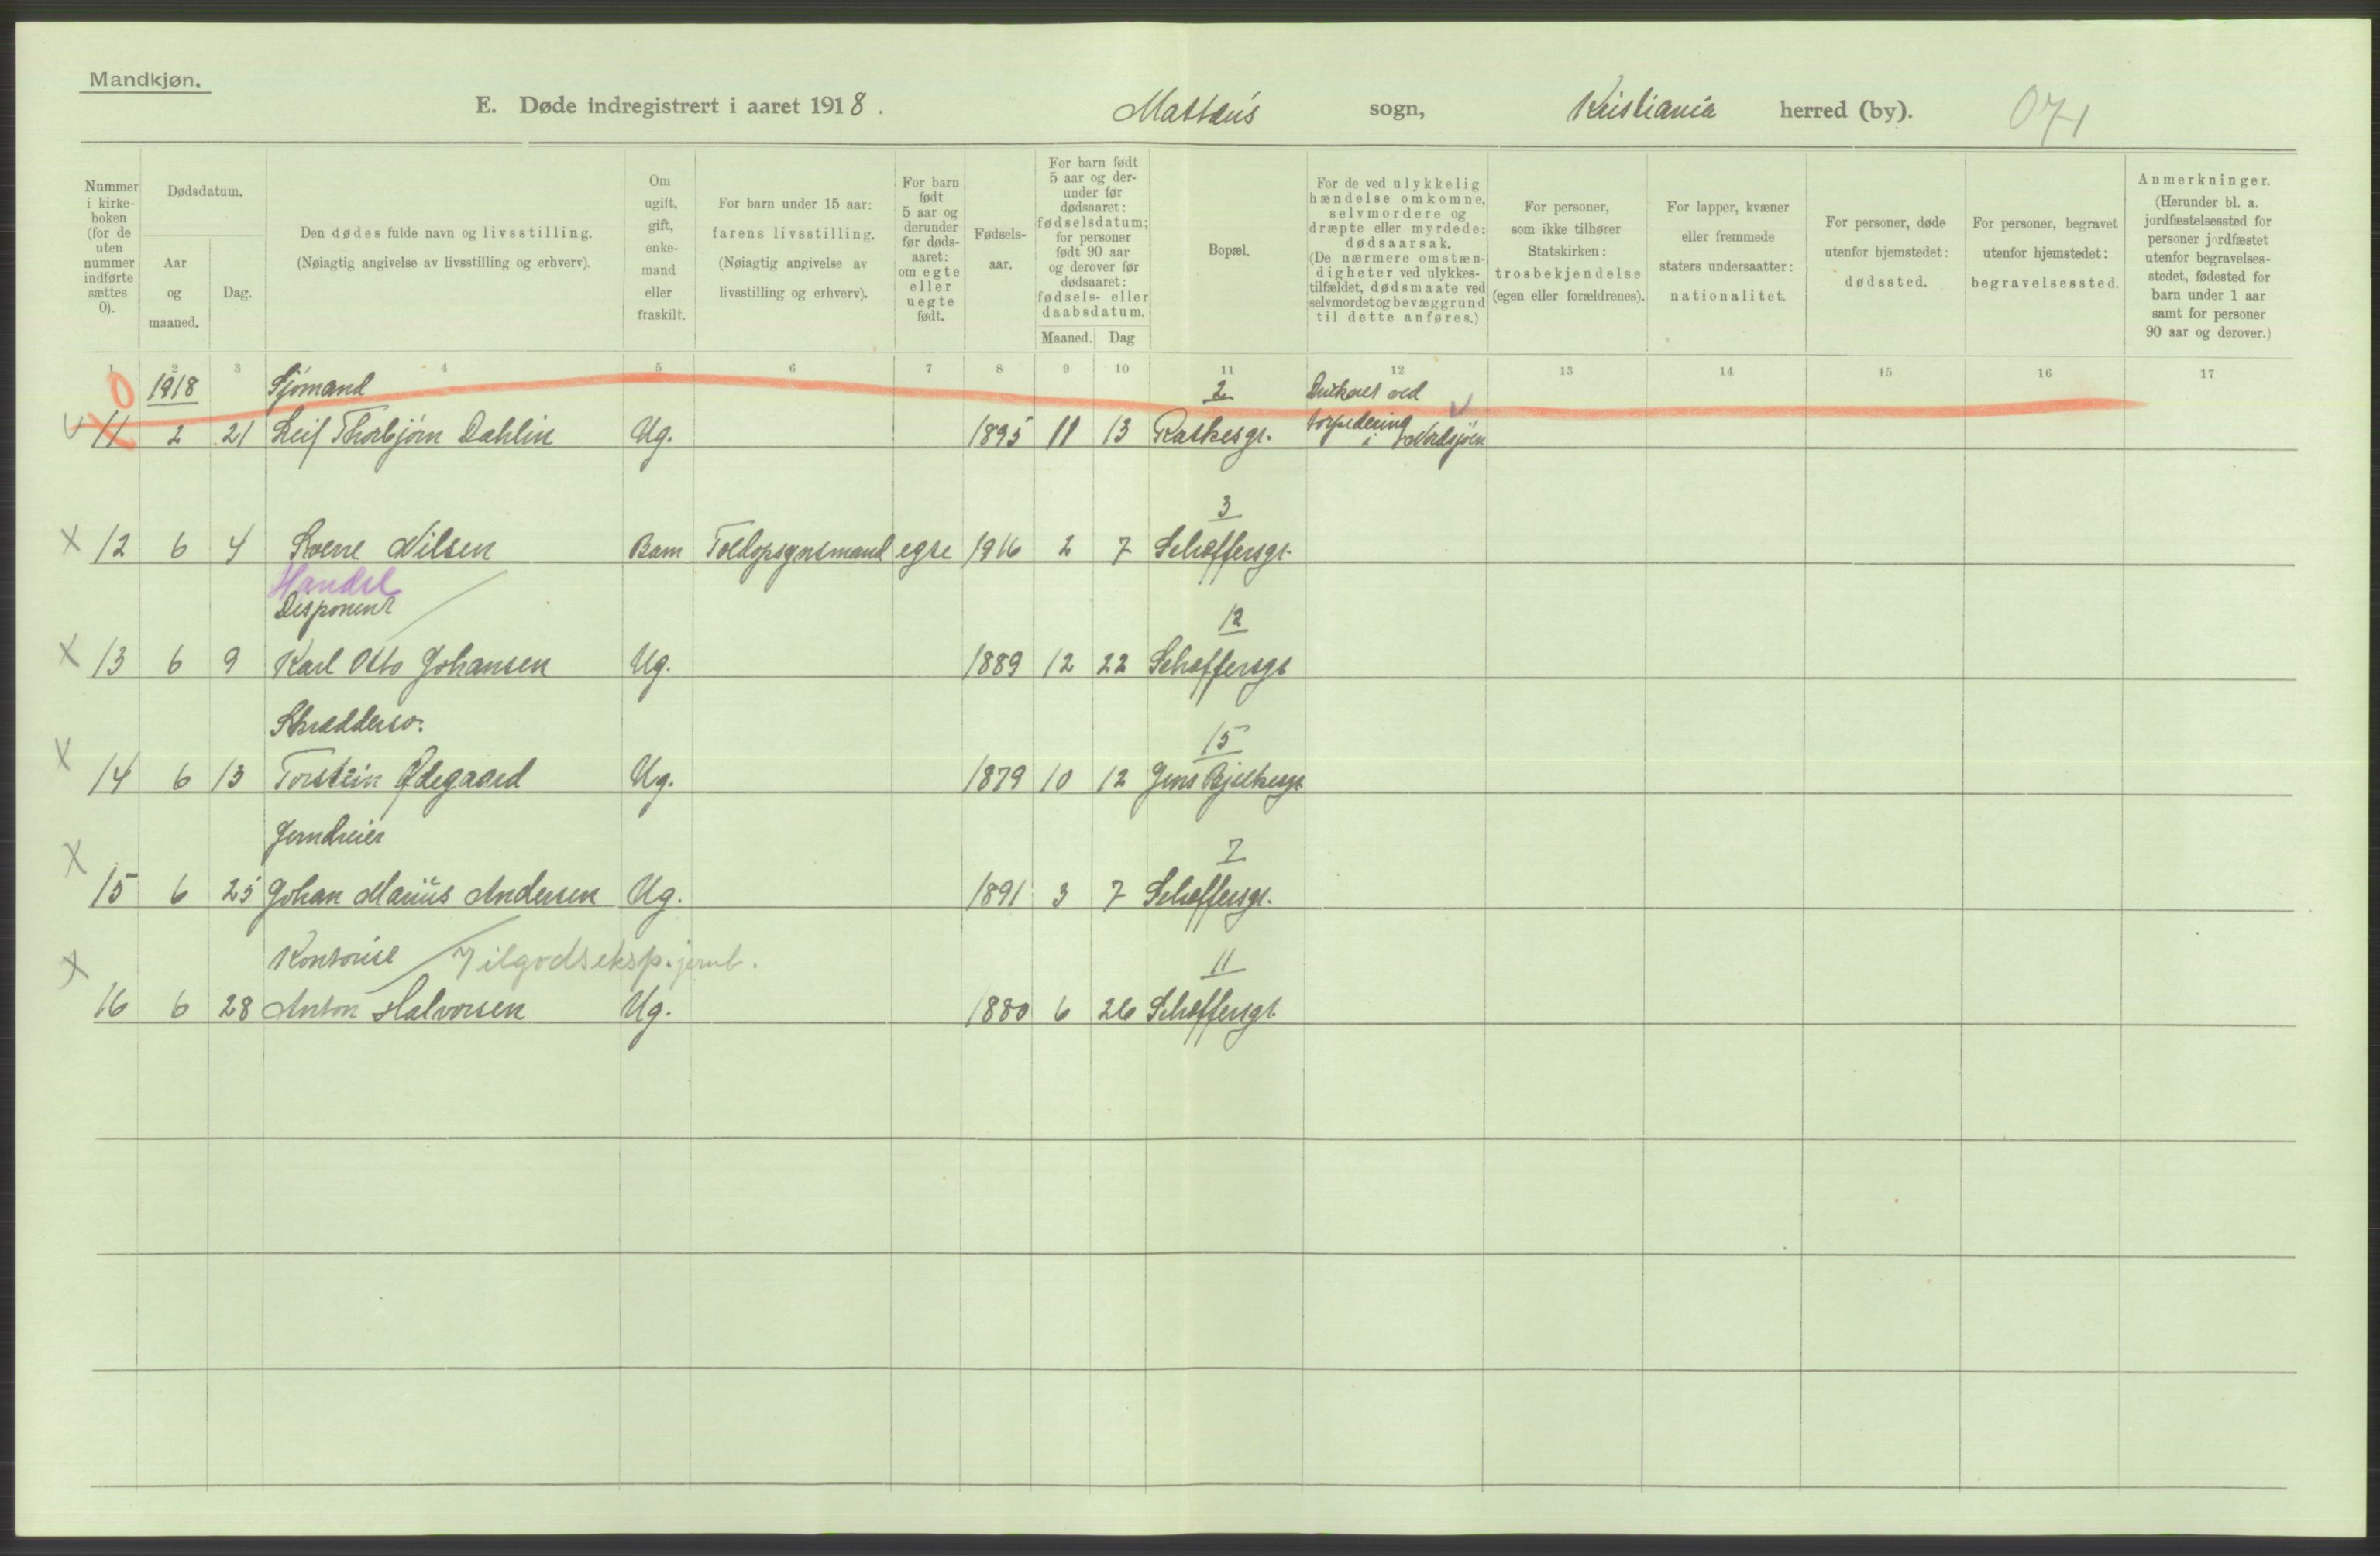 Mandkjøn.
E. Døde indregistrert i aaret 1918. Mattæus sogn, Kristiania herred (by). 071
Nummer i kirke-boken (for de uten nummer indførte sættes 0).
Dødsdatum.
Aar og maaned.
Dag.
Den dødes fulde navn og livsstilling.
(Nøiagtig angivelse av livsstilling og erhverv).
Om ugift, gift, enke-mand eller fraskilt.
For barn under 15 aar: farens livsstilling.
(Nøiagtig angivelse av livsstilling og erhverv).
For barn født 5 aar og derunder før døds-aaret: om egte eller uegte født.
Fødsels-aar.
For barn født 5 aar og der-under før dødsaaret: fødselsdatum; for personer født 90 aar og derover før dødsaaret: fødsels- eller daabsdatum.
Maaned. Dag
Bopæl.
For de ved ulykkelig hændelse omkomne, selvmordere og dræpte eller myrdede: dødsaarsak.
(De nærmere omstæn-digheter ved ulykkes-tilfældet, dødsmaate ved selvmordet og bevæggrund til dette anføres.)
For personer, som ikke tilhører Statskirken: trosbekjendelse (egen eller forældrenes).
For lapper, kvæner eller fremmede staters undersaatter: nationalitet.
For personer, døde utenfor hjemstedet: dødssted.
For personer, begravet utenfor hjemstedet: begravelsessted.
Anmerkninger.
(Herunder bl. a. jordfæstelsessted for personer jordfæstet utenfor begravelses-stedet, fødested for barn under 1 aar samt for personer 90 aar og derover.)
1 2 3 4 5 6 7 8 9 10 11 12 13 14 15 16 17
0 1918 Sjömand 2 Druknet ved
11 2 21 Leif Thorbjörn Dahlin Ug. 1895 11 13 Raskesgt. torpedering i Nordsjöen
3
x 12 6 4 Sverre Nilsen Barn Toldopsynsmand egte 1916 2 7 Schæffersgt.
Handel
Disponent 12
x 13 6 9 Karl Otto Johansen Ug. 1889 12 22 Schæffersgt
Skræddersv. 15
x 14 6 13 Torstein Ødegaard Ug. 1879 10 12 Jens Bjelkesgt
Jerndreier 7
x 15 6 25 Johan Marius Andersen Ug. 1891 3 7 Schæffersgt.
Kontorist / Ilgodseksp. jernb. 11
x 16 6 28 Anton Halvorsen Ug. 1880 6 26 Schæffersgt.